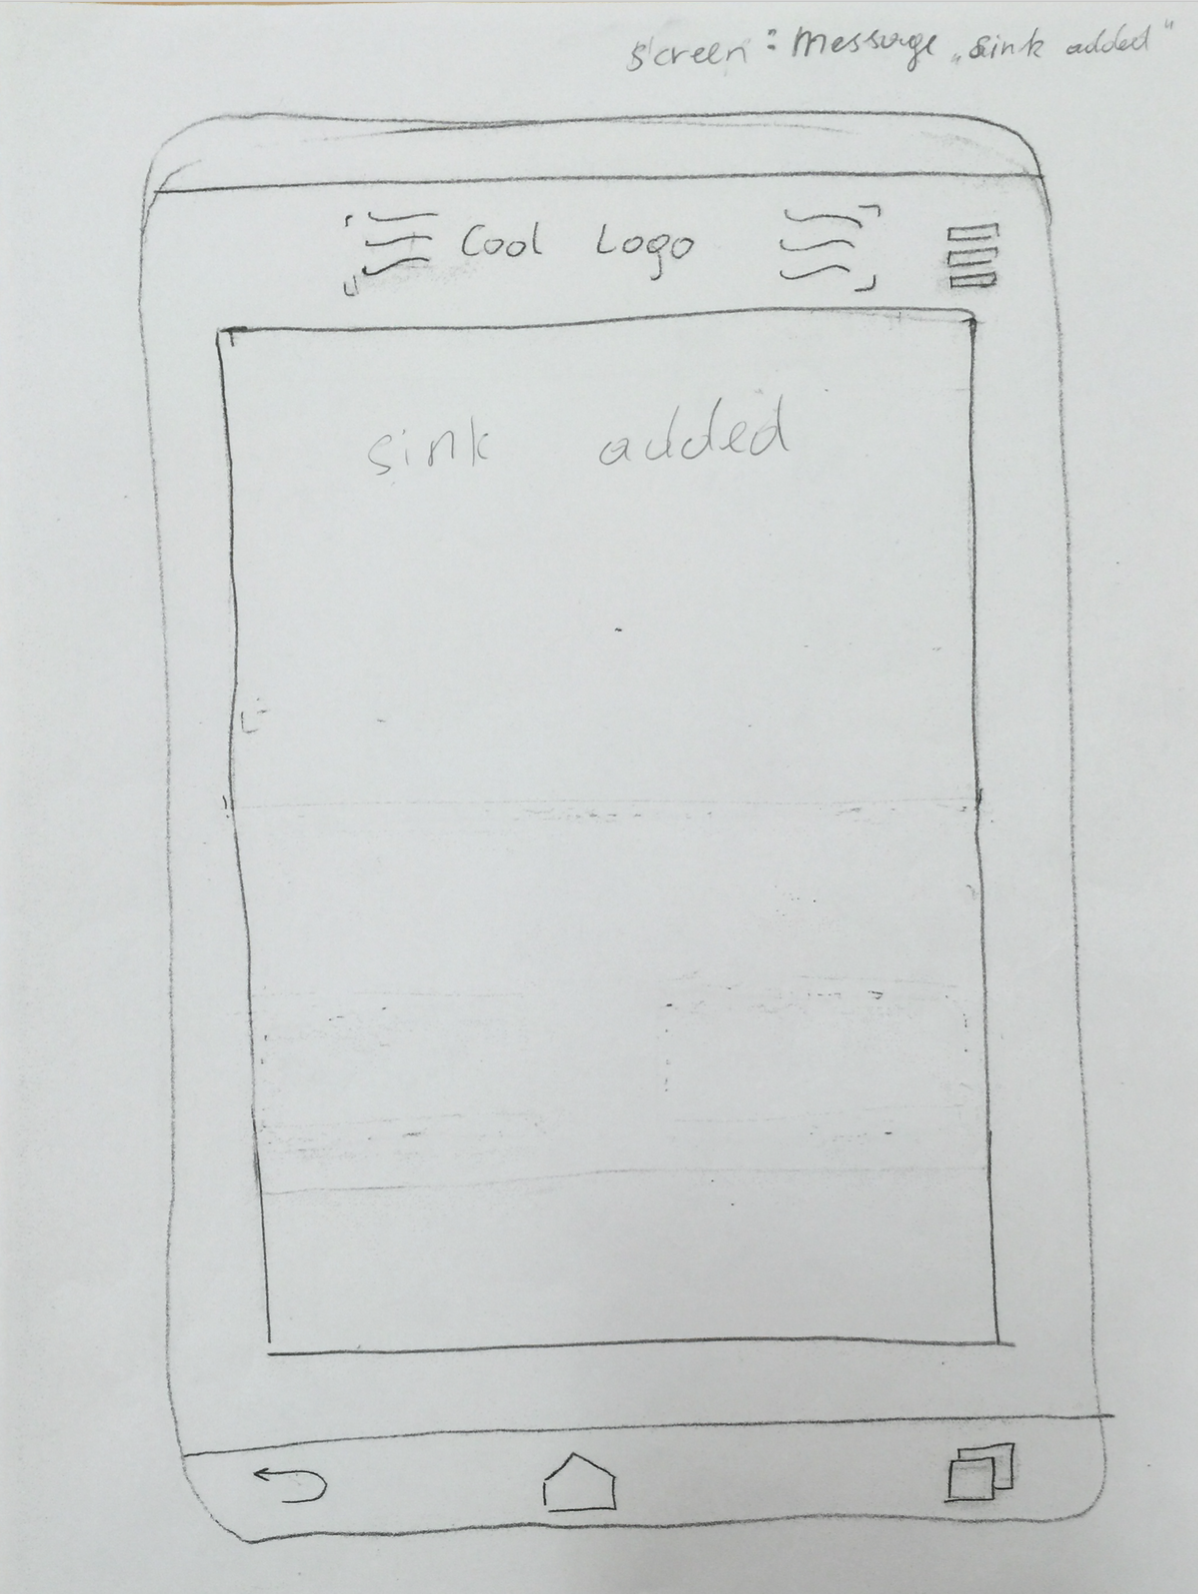 screen: Message „sink added"
Cool Logo
sink added